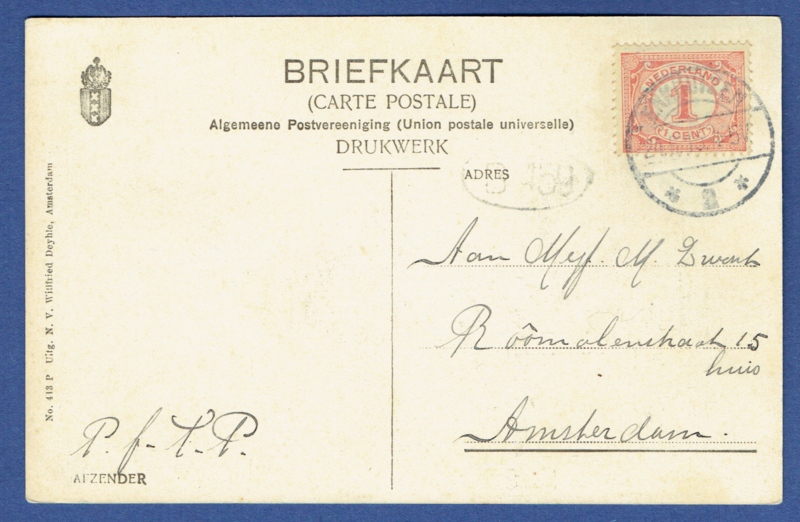 BRIEFKAART
(CARTE POSTALE)
Algemeene Postvereeniging (Union postale universelle)
DRUKWERK
NEDERLAND
1
CENT
ADRES
Aan Mejf. M. Zwart
Roomolenstraat 15
huis
Amsterdam.
P. f. T. P.
AFZENDER
No. 413 P Uitg. N. V. Wilfried Deyhle, Amsterdam